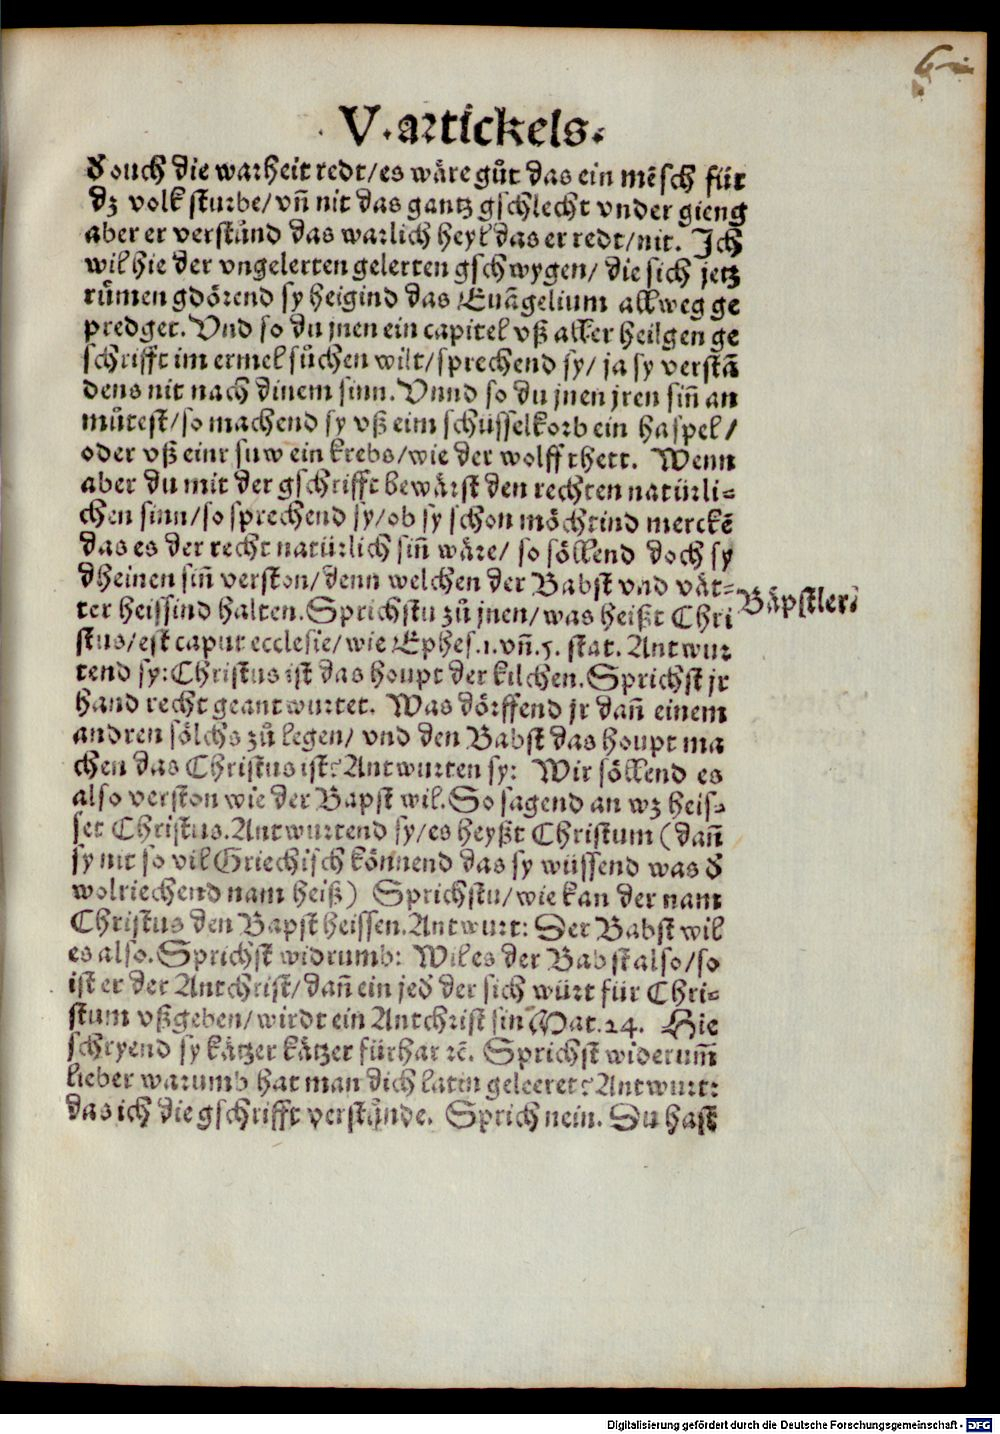 V. artickels.
d̕ ouch die warheit redt/es wäre gůt das ein mẽsch für
dz volk sturbe/vñ nit das gantz gschlecht vnder gieng
aber er verstůnd das warlich heyl das er redt/nit. Ich
wil hie der vngelerten gelerten gschwygen/ die sich jetz
růmen gdörend sy heigind das Euãgelium allweg ge
predget. Vnd so du jnen ein capitel vß aller heilgen ge
schrifft im ermel sůchen wilt/sprechend sy/ ja sy verstã
dens nit nach dinem sinn. Vnnd so du jnen jren siñ an
můtest/so machend sy vß eim schüsselkorb ein haspel/
oder vß einr suw ein krebs/wie der wolff thett. Wenn
aber du mit der gschrifft bewärst den rechten natürli-
chen sinn/so sprechend sy/ob sy schon möchtind merckẽ
das es der recht natürlich siñ wäre/ so söllend doch sy
dheinen siñ verston/denn welchen der Babst vnd vät-
ter heissind halten. Sprichstu zů jnen/was heißt Chri
stus/est caput ecclesie/wie Ephes.1.vñ.5. stat. Antwur
tend sy: Christus ist das houpt der kilchen. Sprichst jr
hand recht geantwurtet. Was dörffend jr dañ einem
andren sölchs zů legen/ vnd den Babst das houpt ma
chen das Christus ist? Antwurten sy: Wir söllend es
also verston wie der Bapst wil. So sagend an wz heis-
set Christus. Antwurtend sy/es heyßt Christum (dañ
sy nit so vil Griechisch könnend das sy wüssend was d̕
wolriechend nam heiß) Sprichstu/wie kan der nam
Christus den Bapst heissen. Antwurt: Der Babst wil
es also. Sprichst widrumb: Wil es der Babst also/so
ist er der Antchrist/dañ ein jed̕ der sich würt für Chri-
stum vßgeben/wirdt ein Antchrist sin Mat.24. Hie
schryend sy kätzer kätzer fürhar ꝛc̃. Sprichst widerum̃
lieber warumb hat man dich latin geleeret? Antwurt:
das ich die gschrifft verstůnde. Sprich nein. Du hast
Bäpstler.
Digitalisierung gefördert durch die Deutsche Forschungsgemeinschaft - DFG